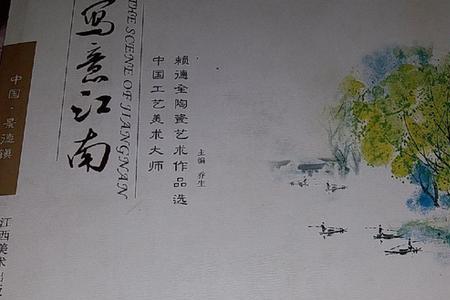 写意江南
THE SCENE OF JIANGNAN
中国工艺美术大师
赖德全陶瓷艺术作品选
主编 乔生
中国·景德镇
江西美术出版